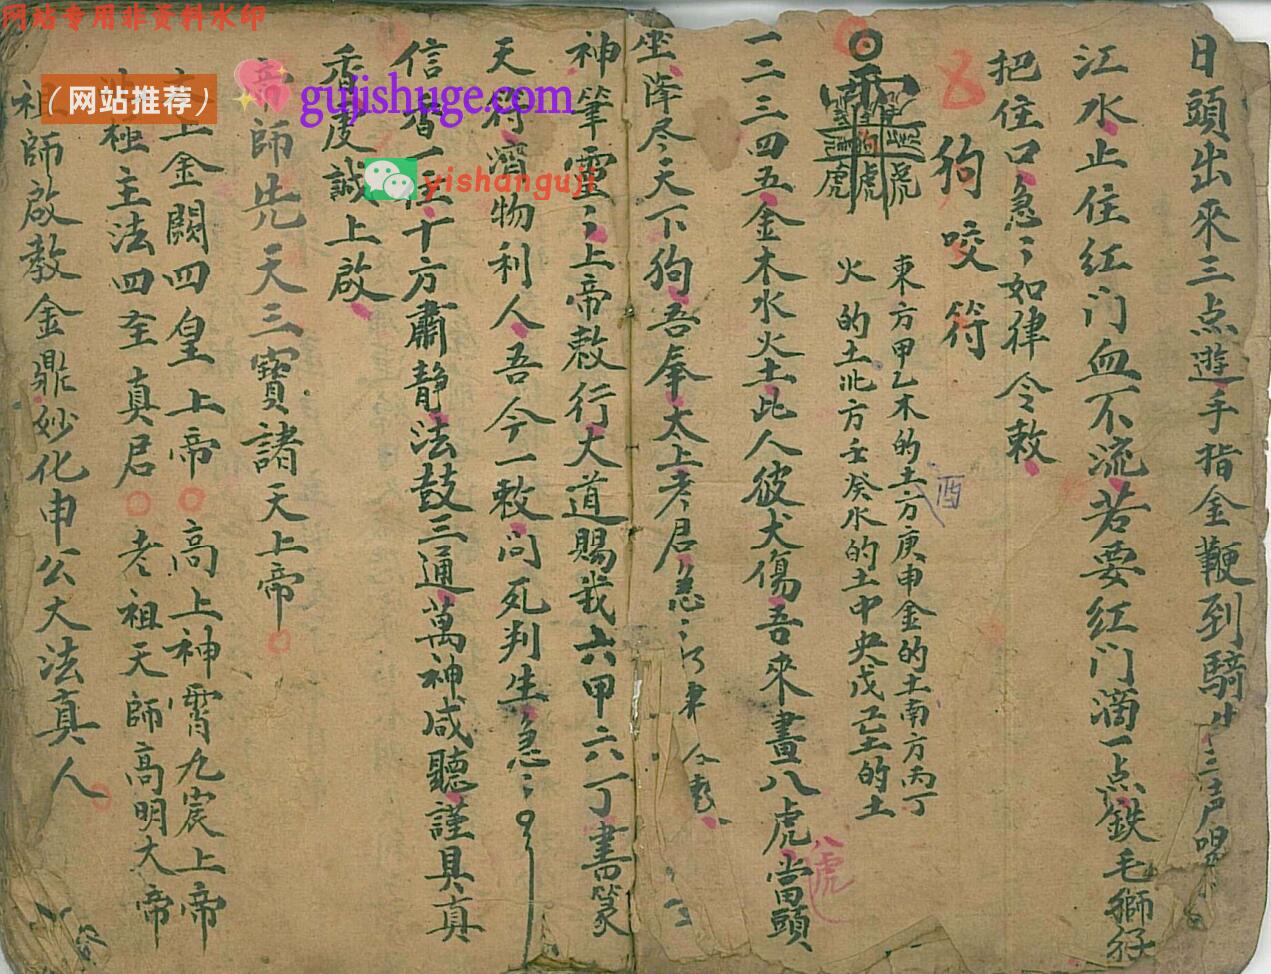 网站专用非资料水印
（网站推荐）
gujishuge.com
yishanguji
日頭出來三点遊手指金鞭到騎牛三
江水止住红门血不流若要红门滴一点鉄毛獅仔
把住口急〻如律令敕
8
狗咬符
東方甲乙木的土方庚申金的土南方丙丁
酉
火的土北方壬癸水的土中央戊己土的土
虎 虎 虎
一二三四五金木水火土此人彼犬傷吾來畫八虎當頭
八虎
坐降尽天下狗吾奉太上老君急〻
神筆靈〻上帝敕行大道賜我六甲六丁書篆
天行濟物利人吾今一敕问死判生急〻
信皆一 十方肅静法鼓三通萬神咸聽謹具真
香虔誠上啟
帝師先天三寶諸天上帝
上金闕四皇上帝 高上神霄九宸上帝
極主法四至真君 老祖天師高明大帝
祖師啟教金鼎妙化申公大法真人